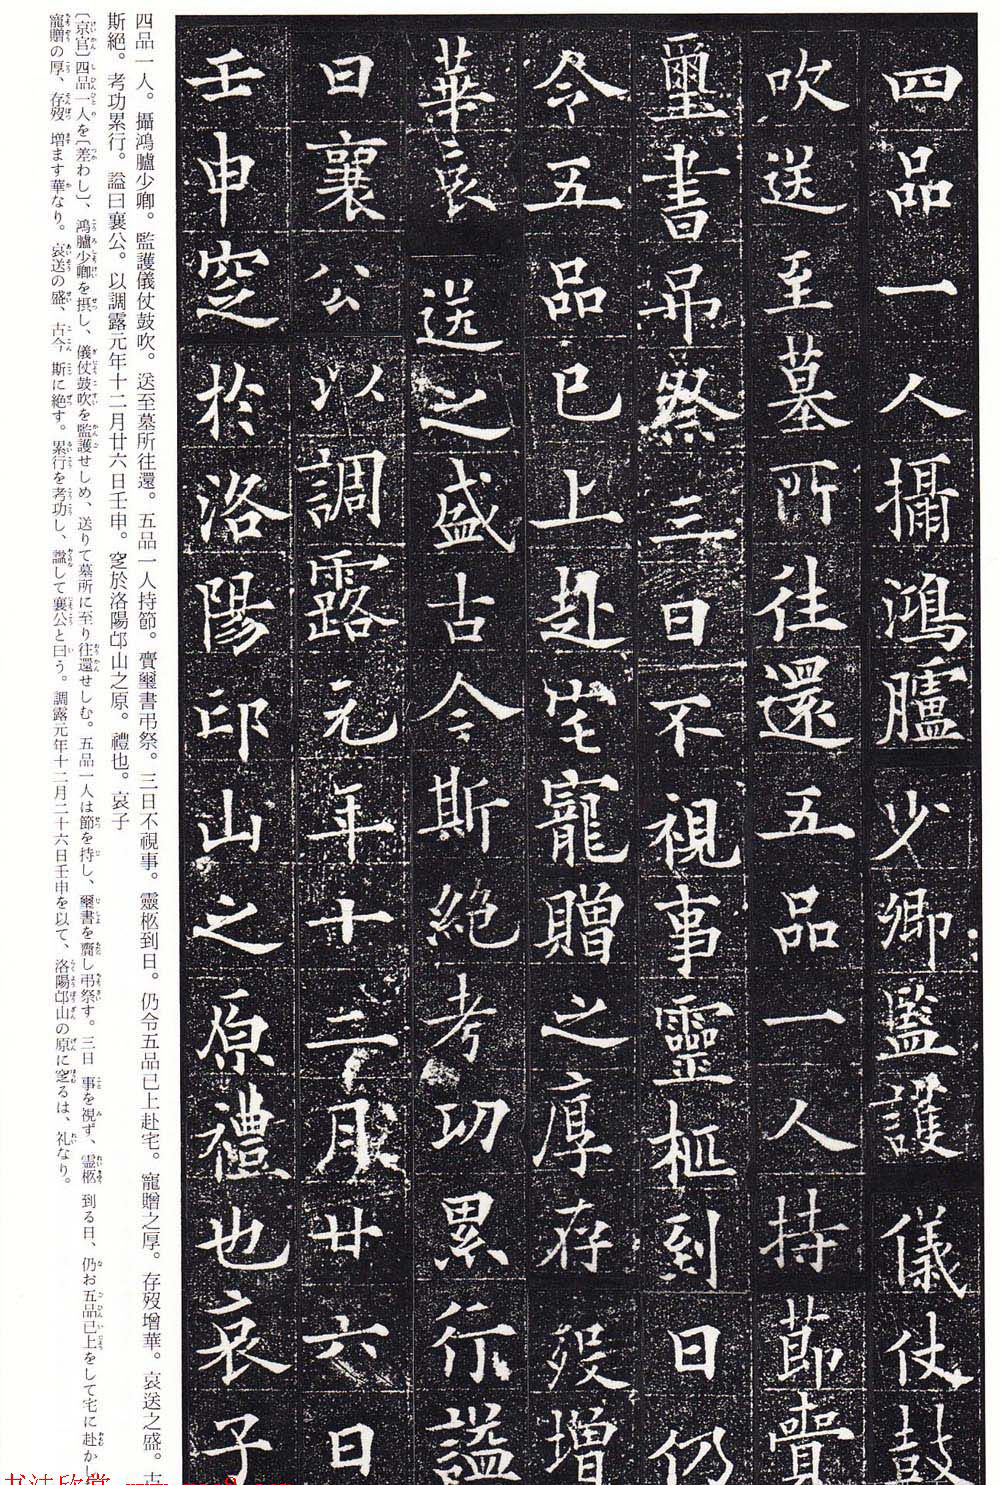 四品一人攝鴻臚少卿監護儀仗鼓
吹送至墓所往還五品一人持節賷
璽書吊祭三日不視事靈柩到日仍
令五品已上赴宅寵贈之厚存歿增
華哀送之盛古今斯絕考功累行謚
曰襄公以調露元年十二月廿六日
壬申窆於洛陽邙山之原禮也哀子
四品一人。攝鴻臚少卿。監護儀仗鼓吹。送至墓所往還。五品一人持節。賷璽書弔祭。三日不視事。靈柩到日。仍令五品已上赴宅。寵贈之厚。存歿增華。哀送之盛。古
斯絕。考功累行。謚曰襄公。以調露元年十二月廿六日壬申。窆於洛陽邙山之原。禮也。哀子
〔京官〕四品一人を〔差わし〕、鴻臚少卿を摂し、儀仗鼓吹を監護せしめ、送りて墓所に至り往還せしむ。五品一人は節を持し、璽書を賷し弔祭す。三日 事を視ず、霊柩 到る日、仍お五品已上をして宅に赴かし
寵贈の厚、存歿 増ます華なり。哀送の盛、古今 斯に絶す。累行を考功し、謚して襄公と曰う。調露元年十二月二十六日壬申を以て、洛陽邙山の原に窆るは、礼なり。